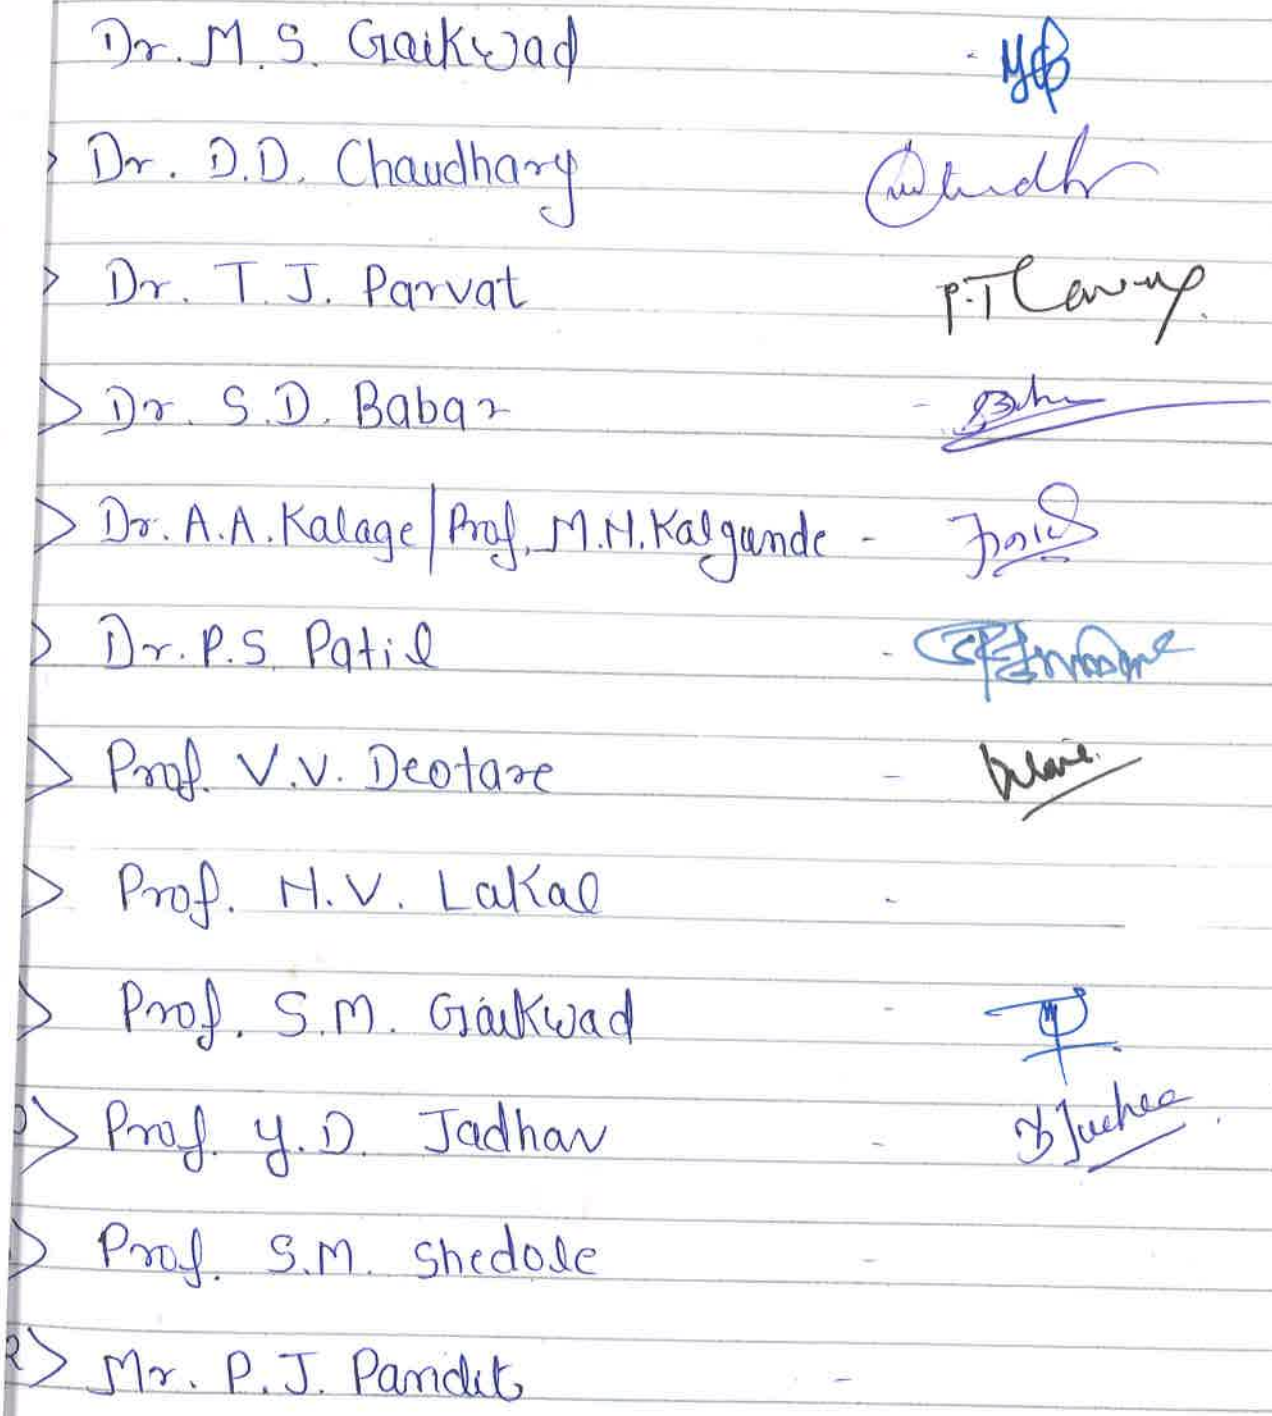 Dr. M. S. Gaikwad -
> Dr. D.D. Chaudhary
> Dr. T. J. Parvat
> Dr. S.D. Babar -
> Dr. A.A. Kalage | Prof. M.N. Kalgunde -
> Dr. P.S. Patil -
> Prof. V.V. Deotare -
> Prof. N.V. Lakal -
> Prof. S.M. Gaikwad -
> Prof. Y.D. Jadhav -
> Prof. S.M. Shedole -
2> Mr. P.J. Pandit -